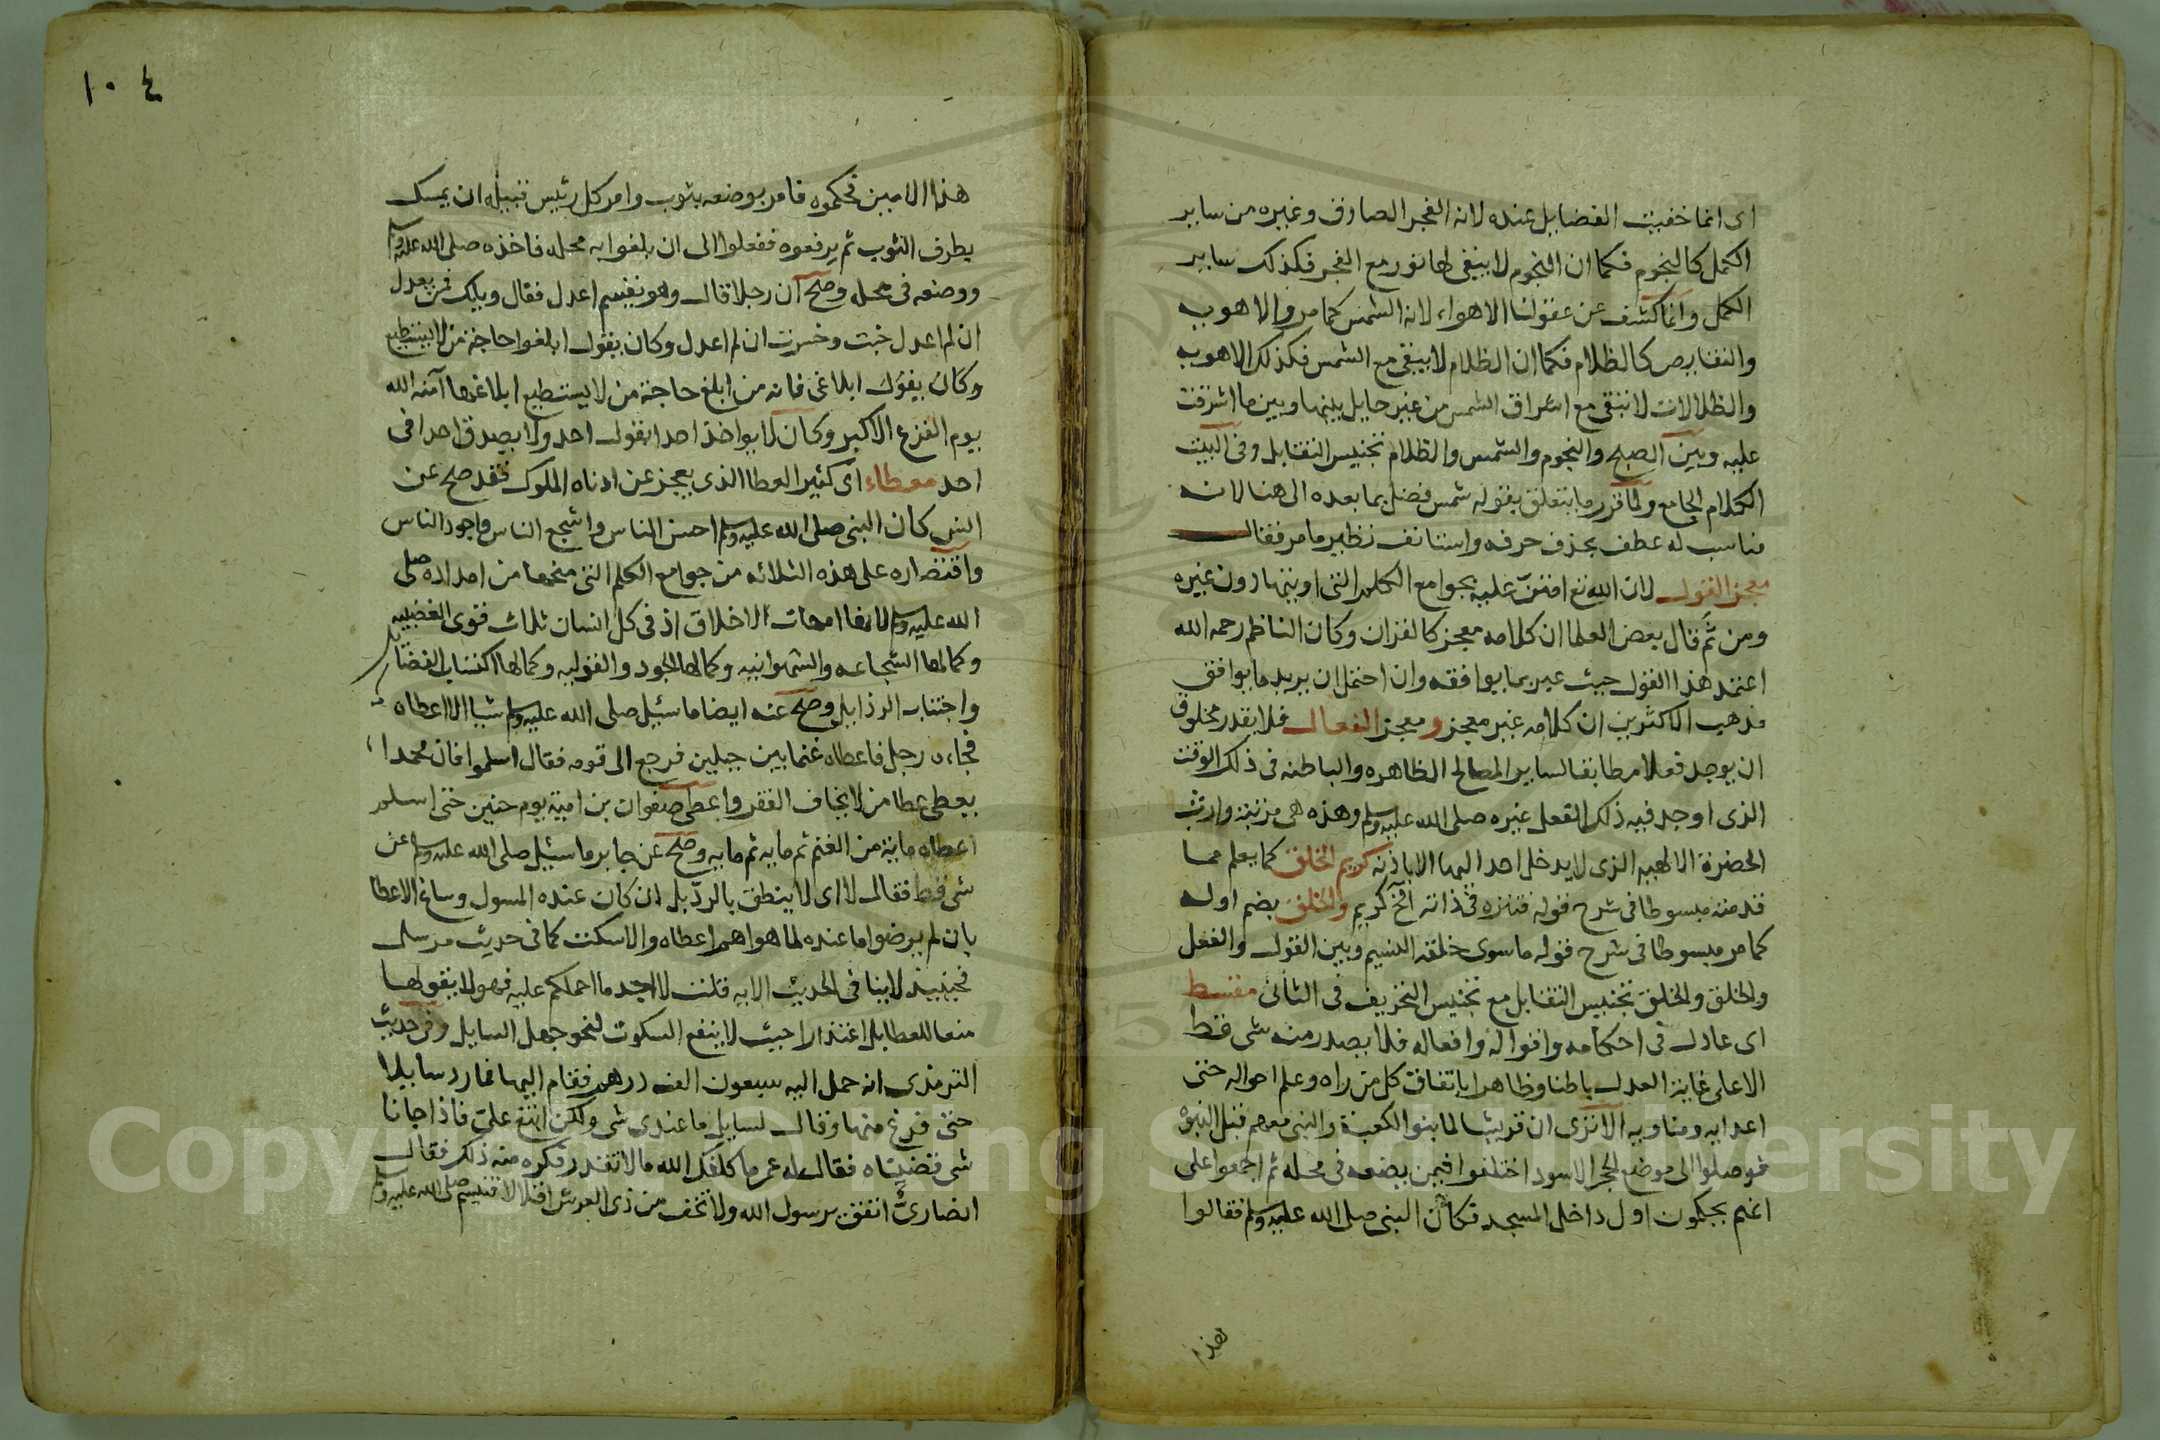 اى انما خفيت الفضايل عنده لانه الفجر الصادق وغيره من ساير
الكمل كالنجوم فكما ان النجوم لا يبقى لها نور مع الفجر فكذلك ساير
الكمل وانما كشف عن عقولنا الاهواء لانه الشمس كما مر والاهوب
والنقايص كالظلام فكما ان الظلام لا يبقى مع الشمس فكذلك الاهويه
والظلالات لا تبقى مع اشراق الشمس من غير حايل بينها وبين ما اشرقت
عليه وبين الصبح والنجوم والشمس والظلام تجنيس التقابل وفى البيت
الكلام الجامع ولما قرر ما يتعلق بقوله شمس فضل بما بعده الى هنا لانه
مناسب له عطف بحذف حرفه واستانف نظير ما مر فقال
معجز القول لان الله تع امتن عليه بجوامع الكلم التى اوتيها دون غيره
ومن ثم قال بعض العلما ان كلامه معجز كالقران وكان الناظم رحمه الله
اعتمد هذا القول حيث عبر بما يوافقه وان احتمل ان يريد ما يوافق
مذهب الاكثرين ان كلامه غير معجز ومعجز الفعال فلا يقدر مخلوق
ان يوجد فعلا مطابقا لساير المصالح الظاهره والباطنه فى ذلك الوقت
الذى اوجد فيه ذلك الفعل غيره صلى الله عليه وسلم وهذه هى مرتبة وارث
الحضرة الالهيه الذى لا يدخل احد اليها الا باذنه كريم الخلق كما يعلم مما
قدمته مبسوطا فى شرح قوله فتنزه فى ذاته الخ كريم والخلق بضم اوله
كما مر مبسوطا فى شرح قوله ما سوى خلقه النسيم وبين القول والفعل
والخلق والخلق تجنيس التقابل مع تجنيس التحريف فى الثانى مقسط
اى عادل فى احكامه واقواله وافعاله فلا يصدر منه شى قط
الا على غاية العدل باطنا وظاهرا باتفاق كل من راه وعلم احواله حتى
اعدايه ومناويه الا ترى ان قريشا لما بنوا الكعبة والنبى معهم قبل النبوه
فوصلوا الى موضع الحجر الاسود اختلفوا فيمن يضعه فى محله ثم اجمعوا على
انهم يحكمون اول داخل المسجد فكان النبى صلى الله عليه وسلم فقالوا
هذا
١٠٤
هذا الامين فحكموه فامر بوضعه بثوب وامر كل رئيس قبيله ان يمسك
بطرف الثوب ثم يرفعوه ففعلوا الى ان بلغوا به محله فاخذه صلى الله عليه وسلم
ووضعه فى محله وصح ان رجلا قال وهو يقسم اعدل فقال ويلك فمن يعدل
ان لم اعدل خبت وخسرت ان لم اعدل وكان يقول ابلغوا حاجة من لا يستطيع
وكان يقول ابلاغى فانه من ابلغ حاجة من لا يستطيع ابلاغها آمنه الله
يوم الفزع الاكبر وكان لا يواخذ احدا بقول احد ولا يصدق احدا فى
احد معطاء اى كثير العطا الذى يعجز عن ادناه الملوك فقد صح عن
انس كان النبى صلى الله عليه وسلم احسن الناس واشجع الناس واجود الناس
واقتصاره على هذه الثلاثه من جوامع الكلم التى منحها من امداده صلى
الله عليه وسلم لانها امهات الاخلاق اذ فى كل انسان ثلاث قوى الغضبيه
وكمالها الشجاعه والشهوانيه وكمالها الجود والقوليه وكمالها اكتساب الفضايل
واجتناب الرذايل وصح عنه ايضا ما سئل صلى الله عليه وسلم شيا الا اعطاه
فجاءه رجل فاعطاه غنما بين جبلين فرجع الى قومه فقال اسلموا فان محمدا
يعطى عطا من لا يخاف الفقر واعطى صفوان بن امية يوم حنين حتى اسلم
اعطاه ماية من الغنم ثم مايه ثم مايه وصح عن جابر ما سئيل صلى الله عليه وسلم عن
شى قط فقال لا اى لا ينطق بالرد بل ان كان عنده المسول وساغ الاعطا
بان لم يرضوا ما عنده لما هو اهم اعطاه والا سكت كما فى حديث مرسل
فحينيذ لا ينافى الحديث الايه قلت لا اجد ما احملكم عليه فهو لا يقولها
منعا للعطا بل اعتذارا حيث لا ينفع السكوت لنحو جهل السايل وفى حديث
الترمذى انه حمل اليه سبعون الف درهم فقام اليها فما رد سايلا
حتى فرغ منها وقال لسايل ما عندى شى ولكن ابتع على فاذا جانا
شى قضيناه فقال له عمر ما كلفك الله ما لا تقدر فكره منه ذلك فقال
انصارى انفق يرسول الله ولا تخف من ذى العرش اقلالا فتبسم صلى الله عليه وسلم
Copyright © King Saud University